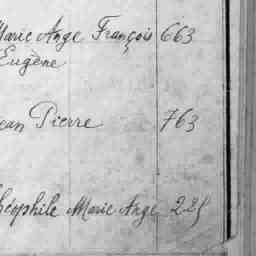 Marie Ange François 663
Eugène
Jean Pierre 763
Théophile Marie Ange